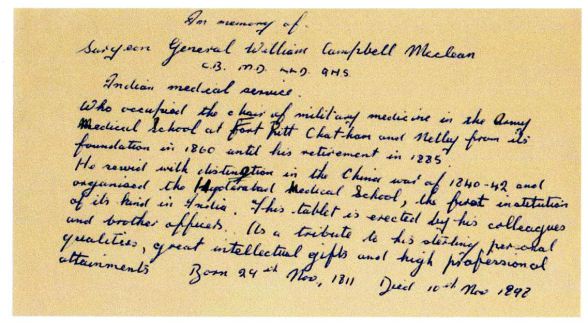 In memory of.
Surgeon General William Campbell Mcclean
C.B. M.D. LL.D. Q.H.S.
Indian medical service.
Who occupied the chair of military medicine in the Army
Medical School at Fort Pitt Chatham and Netley from its
foundation in 1860 until his retirement in 1885
He served with distinction in the China war of 1840-42 and
organised the Hyderabad Medical School, the first institution
of its kind in India. This tablet is erected by his colleagues
and brother officers. As a tribute to his sterling personal
qualities, great intellectual gifts and high professional
attainments Born 24th Nov, 1811 Died 10th Nov 1898